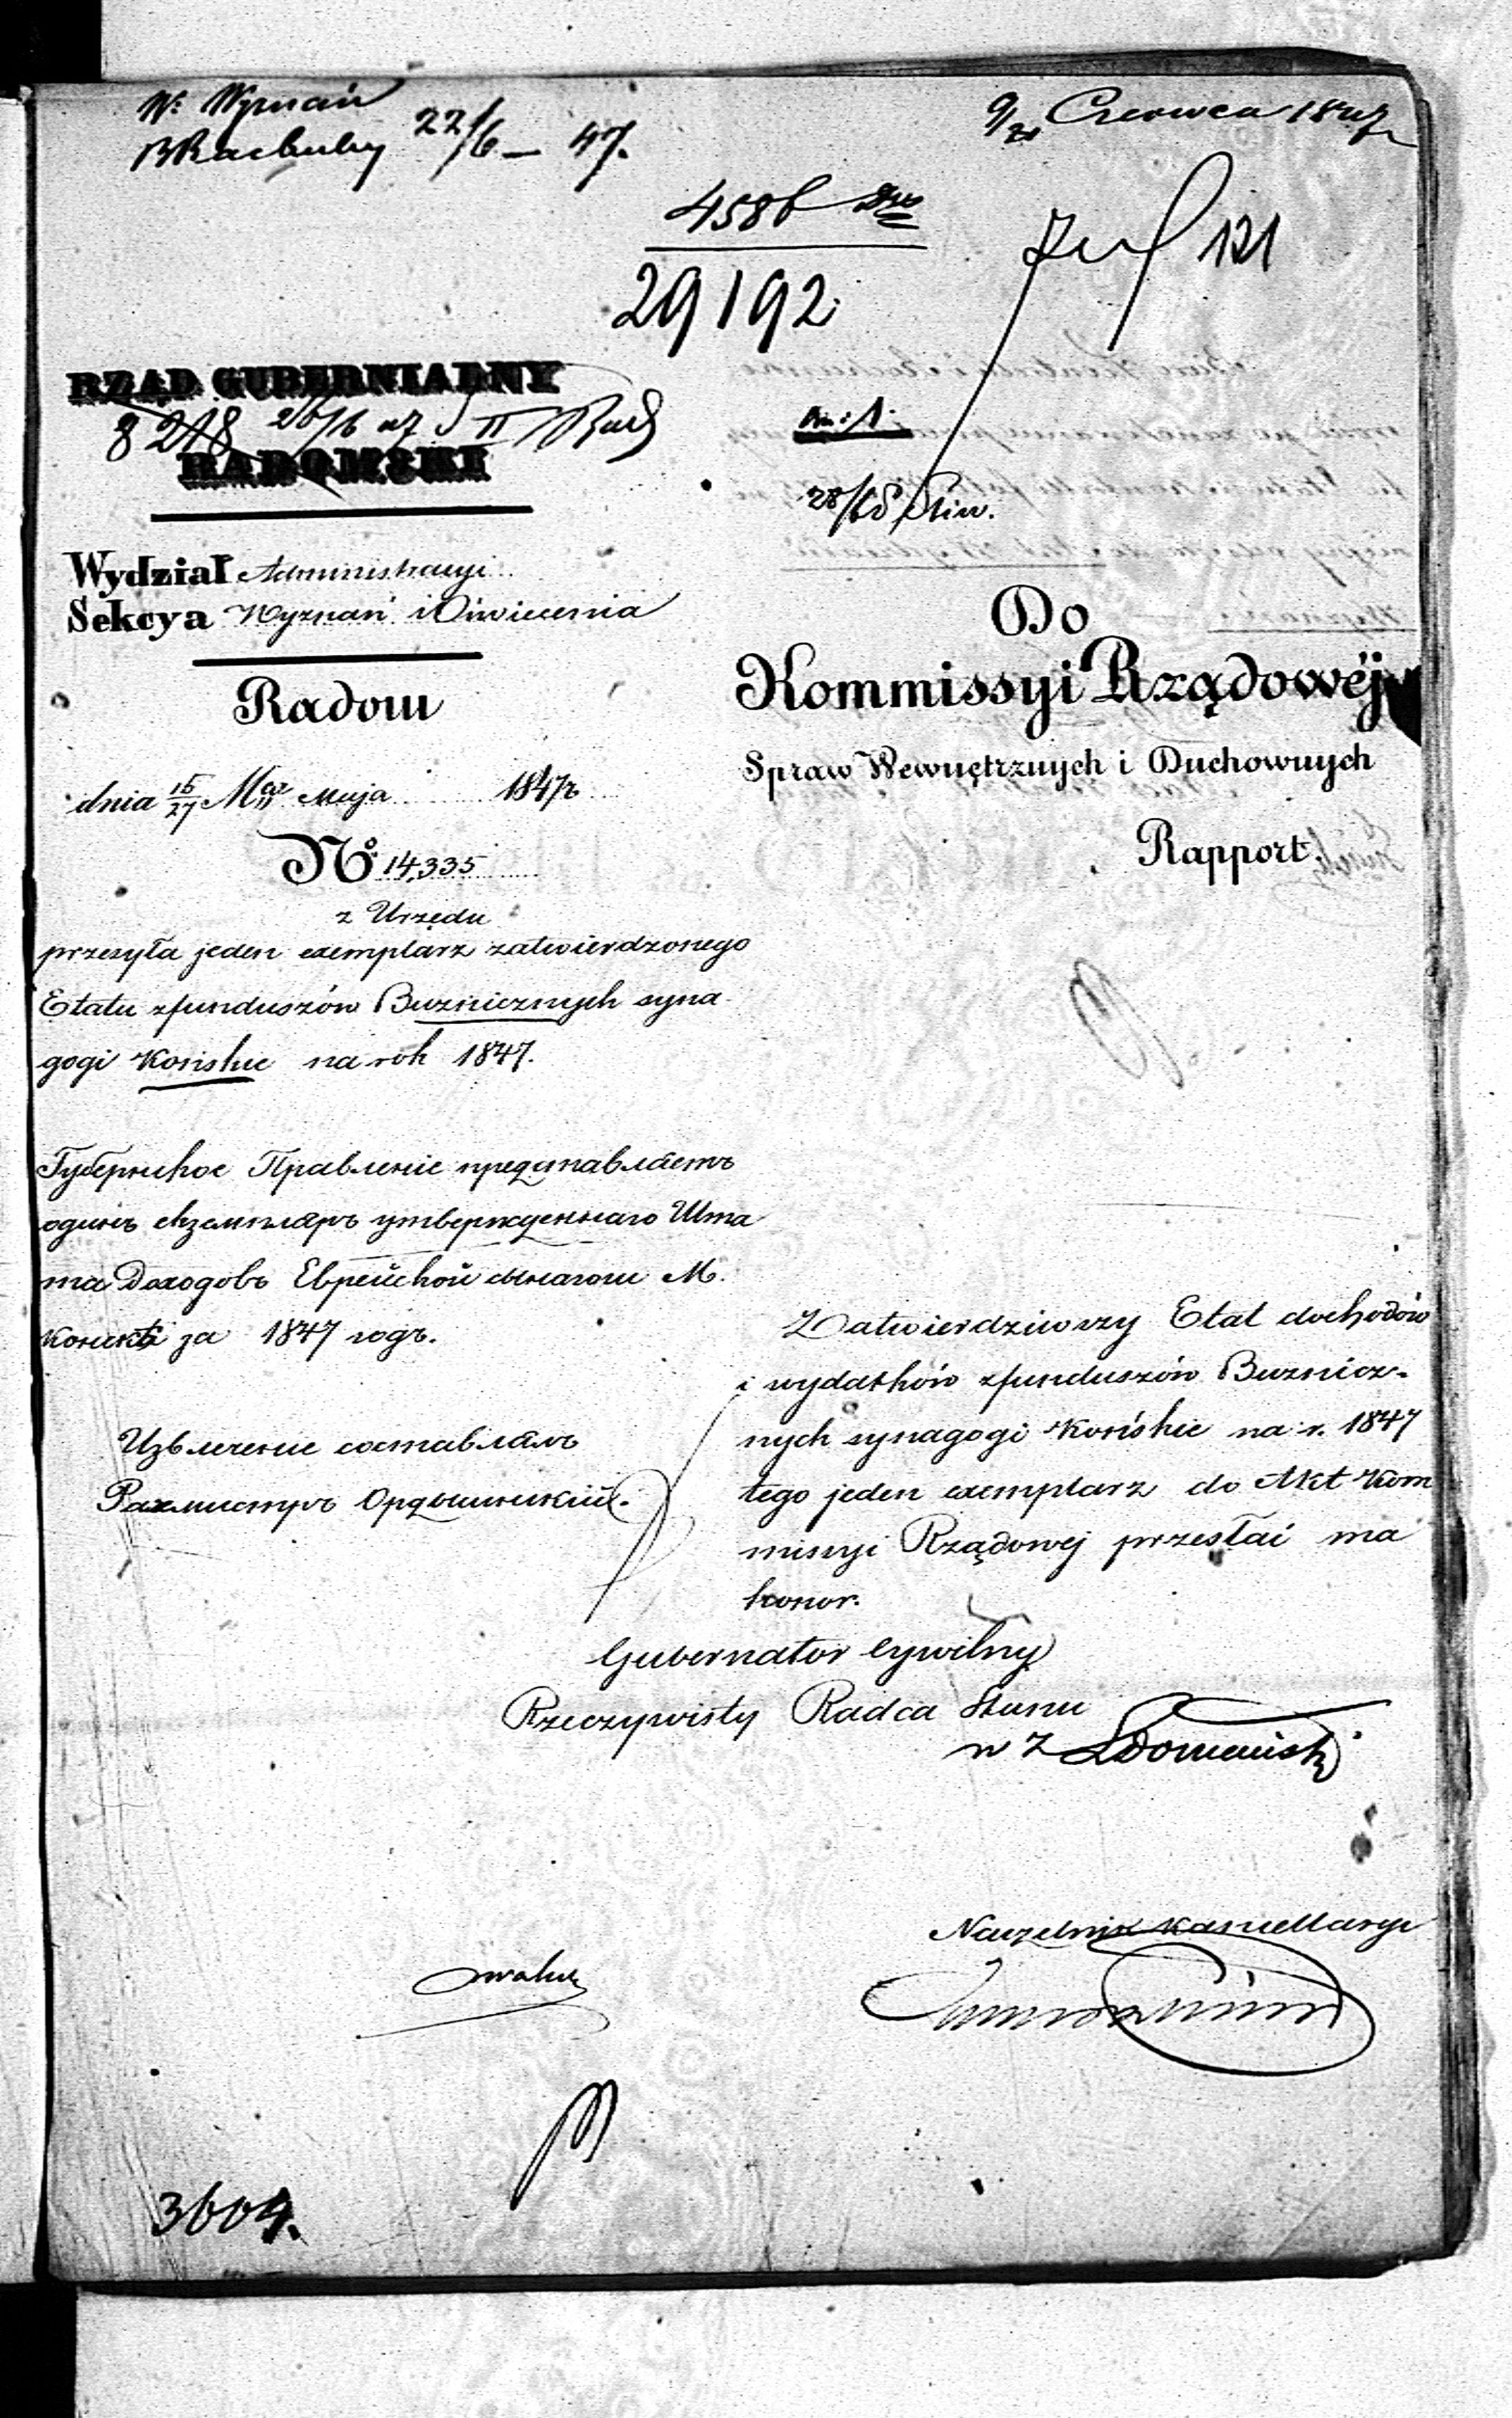 W: Wyznań
B Rachuby 22/6 – 47.
9/21 Czerwca 1847
4586
29192
121
RZĄD GUBERNIALNY
8218 26/6 47 II
RADOMSKI
28/6
Wydział Administracyi
Sekcya Wyznań i Oświecenia
Radom
dnia 15/27 Maja 1847 r
No. 14,335
z Urzędu
przesyła jeden exemplarz zatwierdzonego
Etatu z funduszów Bużnicznych syna-
gogi Końskie na rok 1847.
Губернское Правленіе представляетъ
одинъ екземпляръ утвержденнаго Шта
та Доходовъ Еврейской синагоги М.
Конскъ за 1847 годъ.
Извлеченіе составлялъ
Рахмистръ
Do
Kommissyi Rządowéj
Spraw Wewnętrznych i Duchownych
Rapport.
Zatwierdziwszy Etat dochodów
i wydatków z funduszów Bużnicz-
nych synagogi Końskie na r. 1847
tego jeden exemplarz do Akt Kom
missyi Rządowej przesłać ma
honor.
Gubernator Cywilny
Rzeczywisty Radca Stanu
w z
Naczelnik Kancellaryi
3604.